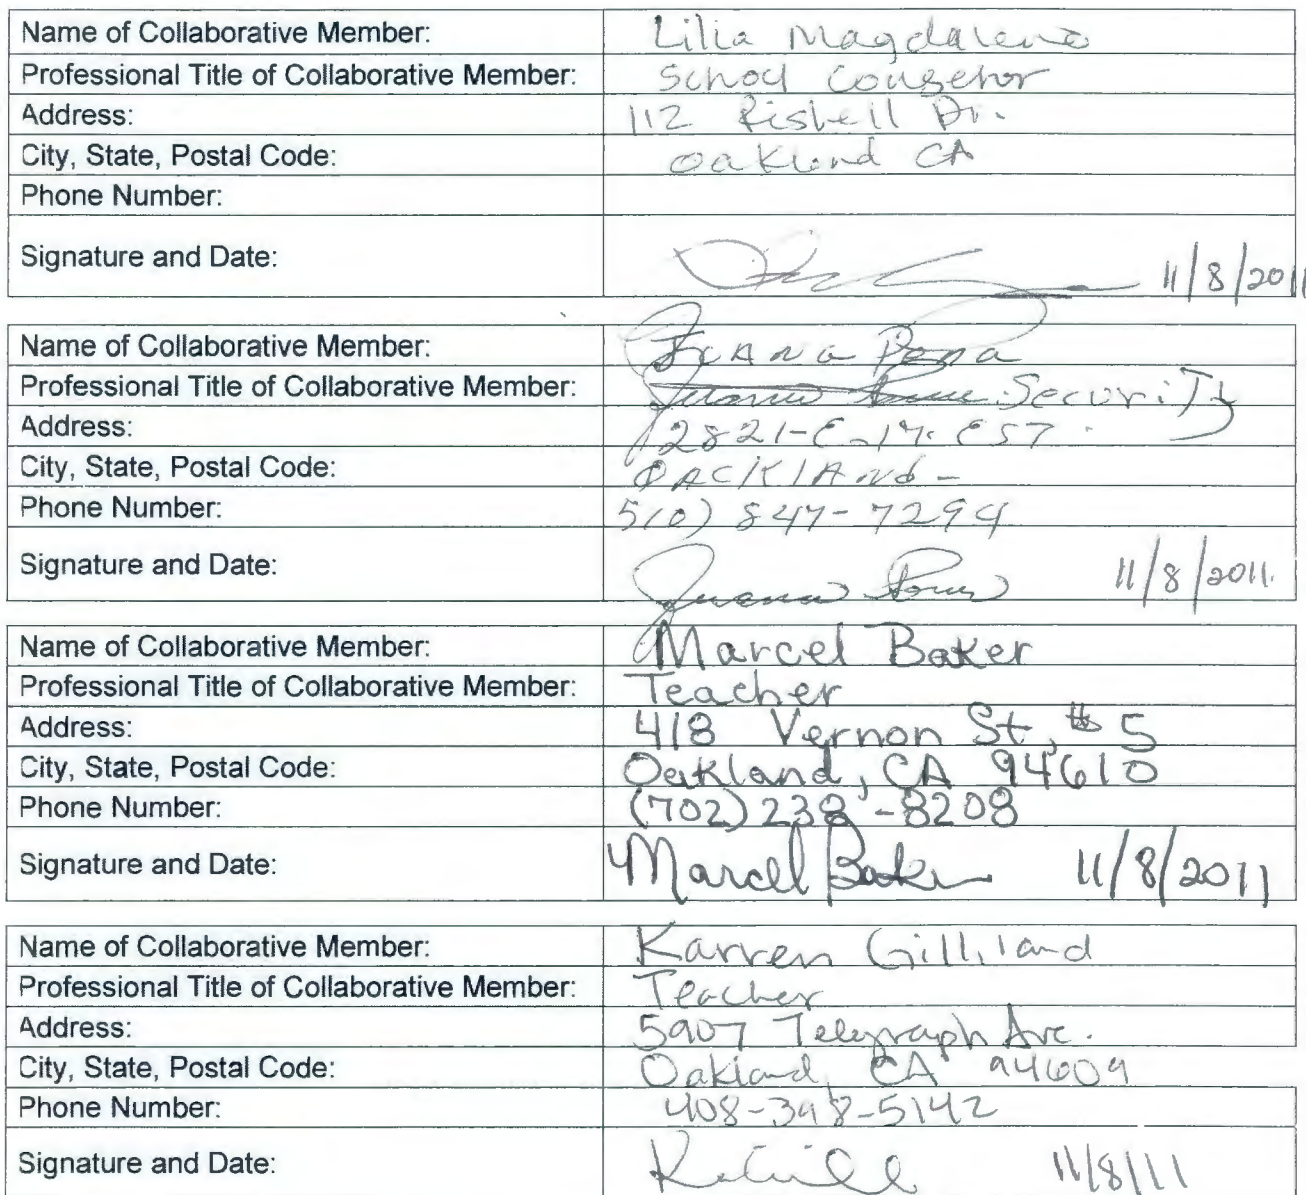 Name of Collaborative Member: Lilia Magdaleno
Professional Title of Collaborative Member: School Counselor
Address: 112 Rishell Dr.
City, State, Postal Code: Oakland CA
Phone Number:
Signature and Date: 11/8/2011
Name of Collaborative Member: Juana
Professional Title of Collaborative Member: Security
Address: 2821-E-17.
City, State, Postal Code: OACKLAND-
Phone Number: 510) 847-7294
Signature and Date: Juana 11/8/2011.
Name of Collaborative Member: Marcel Baker
Professional Title of Collaborative Member: Teacher
Address: 418 Vernon St, #5
City, State, Postal Code: Oakland, CA 94610
Phone Number: (702) 238-8208
Signature and Date: Marcel Baker 11/8/2011
Name of Collaborative Member: Karren Gilliland
Professional Title of Collaborative Member: Teacher
Address: 5907 Telegraph Ave.
City, State, Postal Code: Oakland, CA 94609
Phone Number: 408-398-5142
Signature and Date: 11/8/11